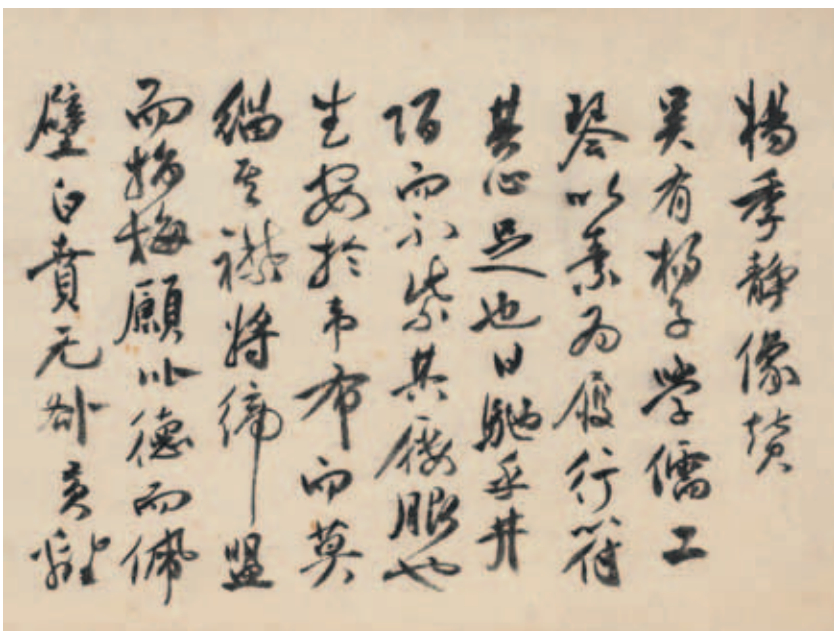 楊季靜像贊
吳有楊子學儒工
琴以素為履行符
其心足也日馳乎井
陌而不紫其服也
生安於韋布而莫
緇其襟將締盟
而招梅願以德而佩
璧白賁无咎黃離